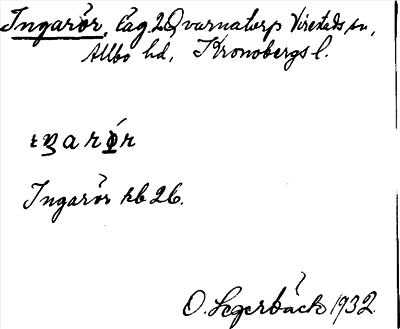 Ingarör, läg. 2 Qvarnatorp Virestads sn,
Allbo hd, Kronobergs l.
Ingarör hb 26.
O. Segerbäck 1932